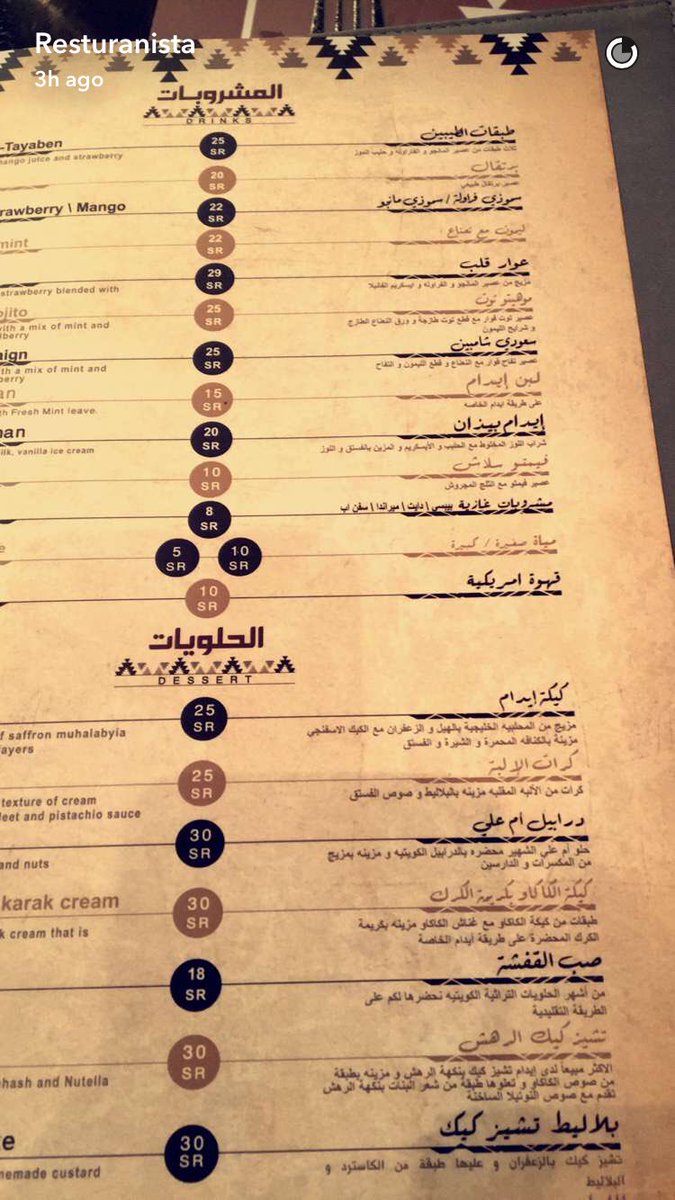 Resturanista
3h ago
المشروبات
DRINKS
-Tayaben
25 SR
طبقات الطيبين
mango juice and strawberry
ثلاث طبقات من عصير المانجو و الفراولة و حليب الموز
20 SR
برتقال
عصير برتقال طبيعي
rawberry \ Mango
22 SR
سموذي فراولة / سموذي مانجو
mint
22 SR
ليمون مع نعناع
29 SR
عوار قلب
strawberry blended with
مزيج من عصير المانجو و الفراولة و ايسكريم الفانيلا
ojito
25 SR
موهيتو توت
with a mix of mint and
عصير توت فوار مع قطع توت طازجة و ورق النعناع الطازج
berry
و شرايح الليمون
aign
25 SR
سعودي شامبين
th a mix of mint and
عصير تفاح فوار مع النعناع و قطع الليمون و التفاح
berry
an
15 SR
لبن إيدام
th Fresh Mint leave.
على طريقة ايدام الخاصه
nan
20 SR
إيدام بيذان
ilk, vanilla ice cream
شراب اللوز المخلوط مع الحليب و الأيسكريم و المزين بالفستق و اللوز
10 SR
فيمتو سلاش
عصير فيمتو مع الثلج المجروش
8 SR
مشروبات غازية بيبسي | دايت | ميراندا | سفن اب
e
5 SR
10 SR
مياة صغيرة / كبيرة
10 SR
قهوة امريكية
الحلويات
DESSERT
25 SR
كيكة إيدام
f saffron muhalabyia
مزيج من المحلبيه الخليجية بالهيل و الزعفران مع الكيك الاسفنجي
ayers
مزينة بالكنافه المحمرة و الشيرة و الفستق
25 SR
كرات الإلبة
texture of cream
كرات من الألبه المقلبه مزينه بالبلاليط و صوص الفستق
eet and pistachio sauce
30 SR
درابيل أم علي
حلو أم علي الشهير محضره بالدرابيل الكويتيه و مزينه بمزيج
and nuts
من المكسرات و الدارسين
karak cream
30 SR
كيكة الكاكاو بكريمة الكرك
k cream that is
طبقات من كيكة الكاكاو مع غناش الكاكاو مزينه بكريمة
الكرك المحضرة على طريقة أيدام الخاصة
18 SR
صب القفشة
من أشهر الحلويات التراثية الكويتيه نحضرها لكم على
الطريقة التقليدية
30 SR
تشيز كيك الرهش
الاكثر مبيعاً لدى إيدام تشيز كيك بنكهة الرهش و مزينه بطبقة
hash and Nutella
من صوص الكاكاو و تعلوها طبقة من شعر البنات بنكهة الرهش
تقدم مع صوص النوتيلا الساخنة
ke
30 SR
بلاليط تشيز كيك
nemade custard
تشيز كيك بالزعفران و عليها طبقة من الكاسترد و
البلاليط